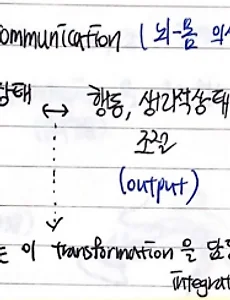 ommunication (뇌-몸 의
상태 ↔ 행동, 생리적상태
조절
(output)
이 transformation을 담
integrat